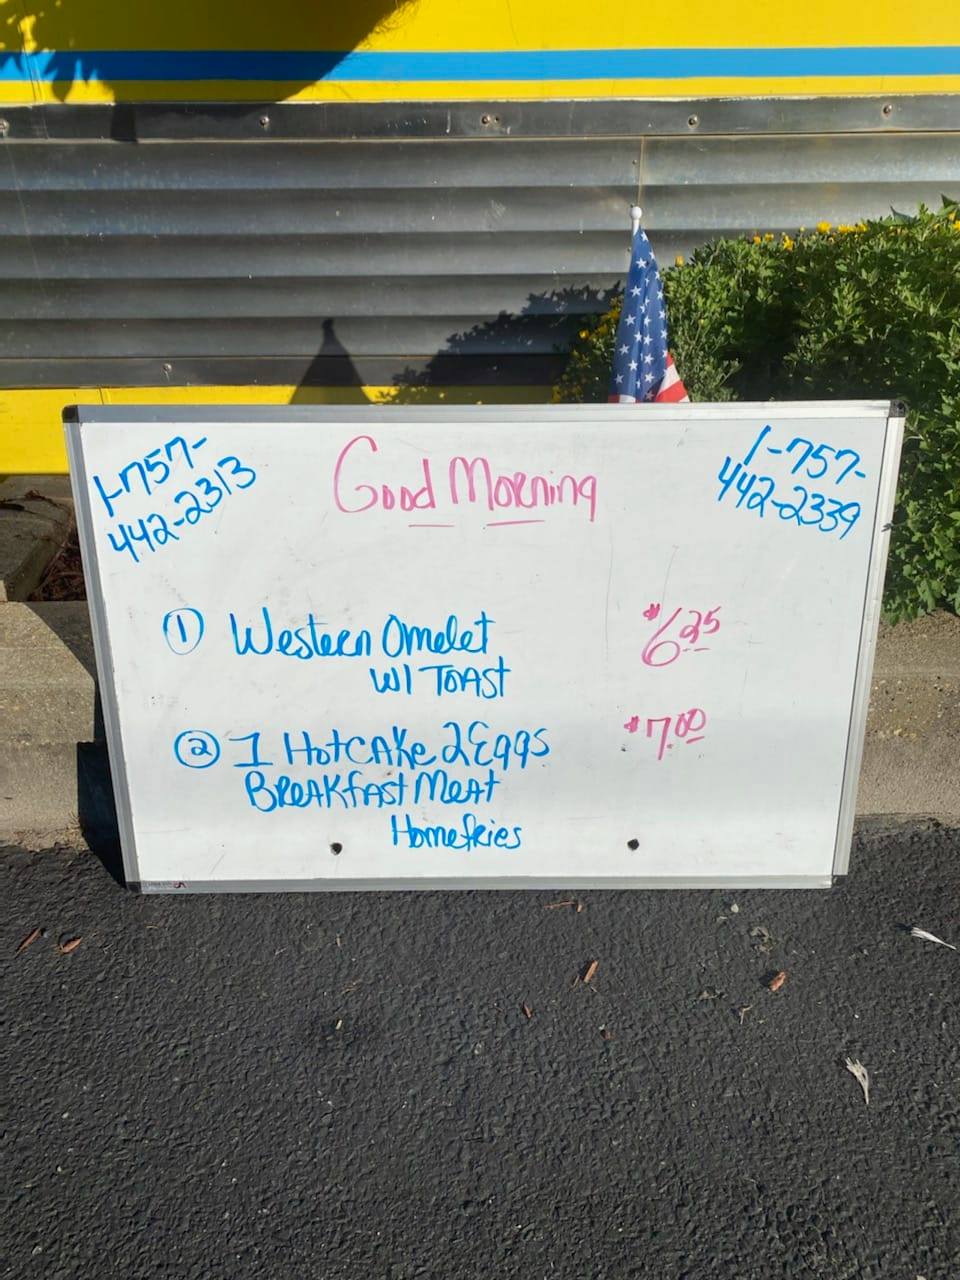 1-757-
442-2313
Good Morning
1-757-
442-2339
① Western Omelet
W/ TOAST
$6.25
② 1 HotcAke 2 Eggs
BreAKfAst MeAt
Homefries
$7.00